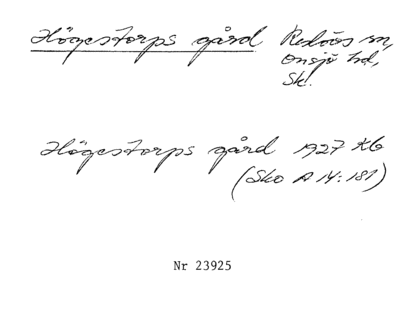 Högestorps gård Reslövs sn,
Onsjö hd,
Sk.
Högestorps gård 1927 Kb
(Sko A 14:181)
Nr 23925